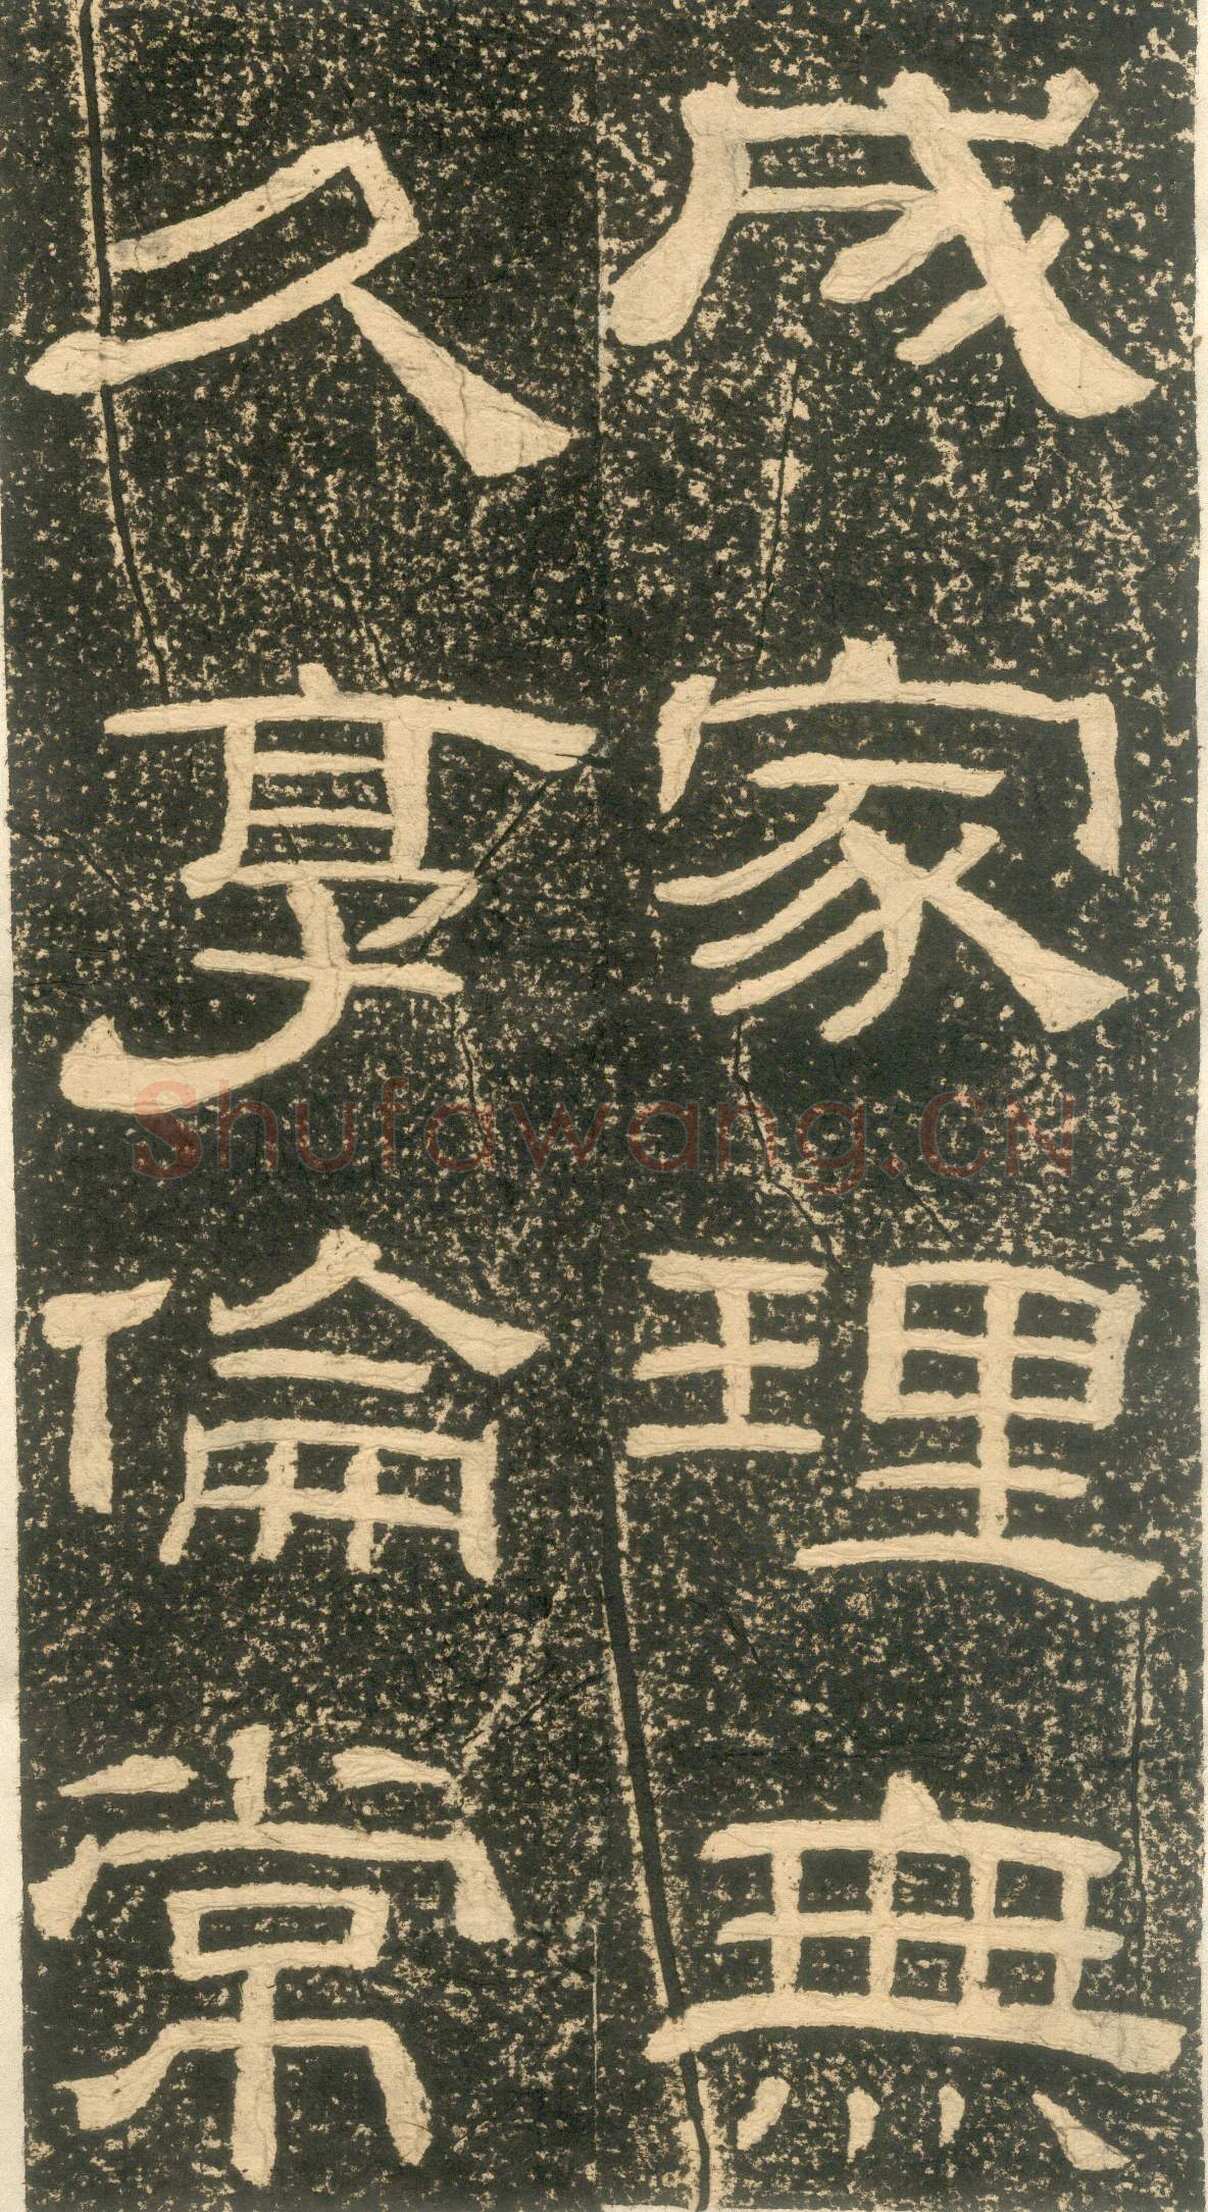 成家理無
久享倫常
Shufawang.CN